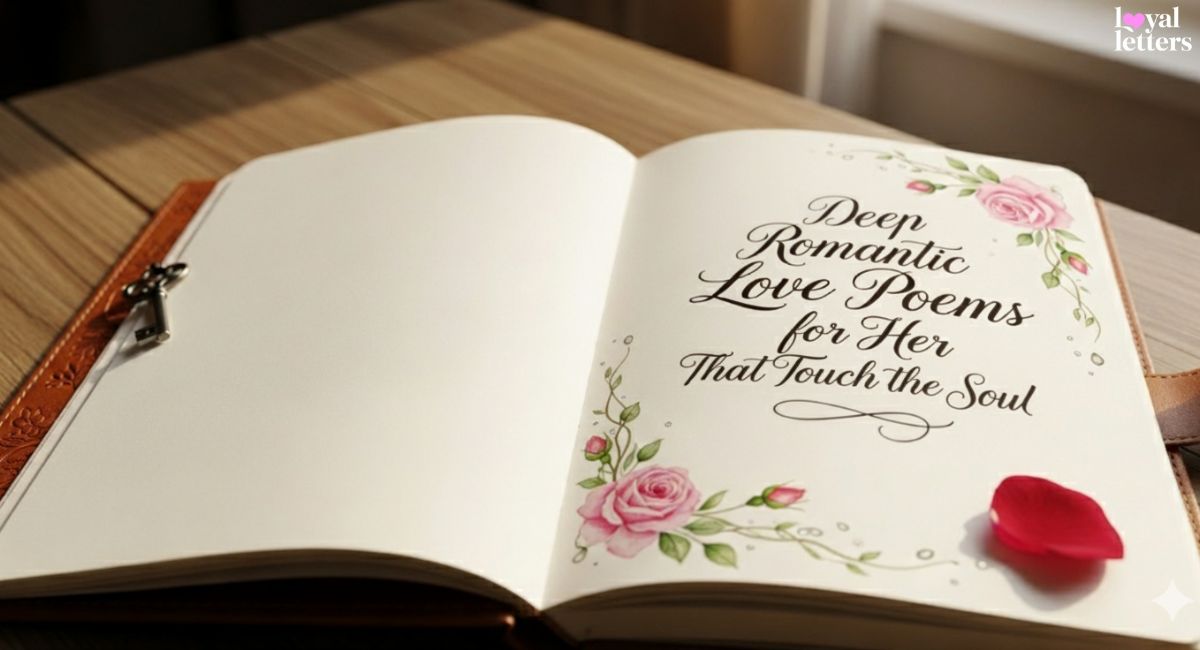 loyal
letters
Deep
Romantic
Love Poems
for Her
That Touch the Soul